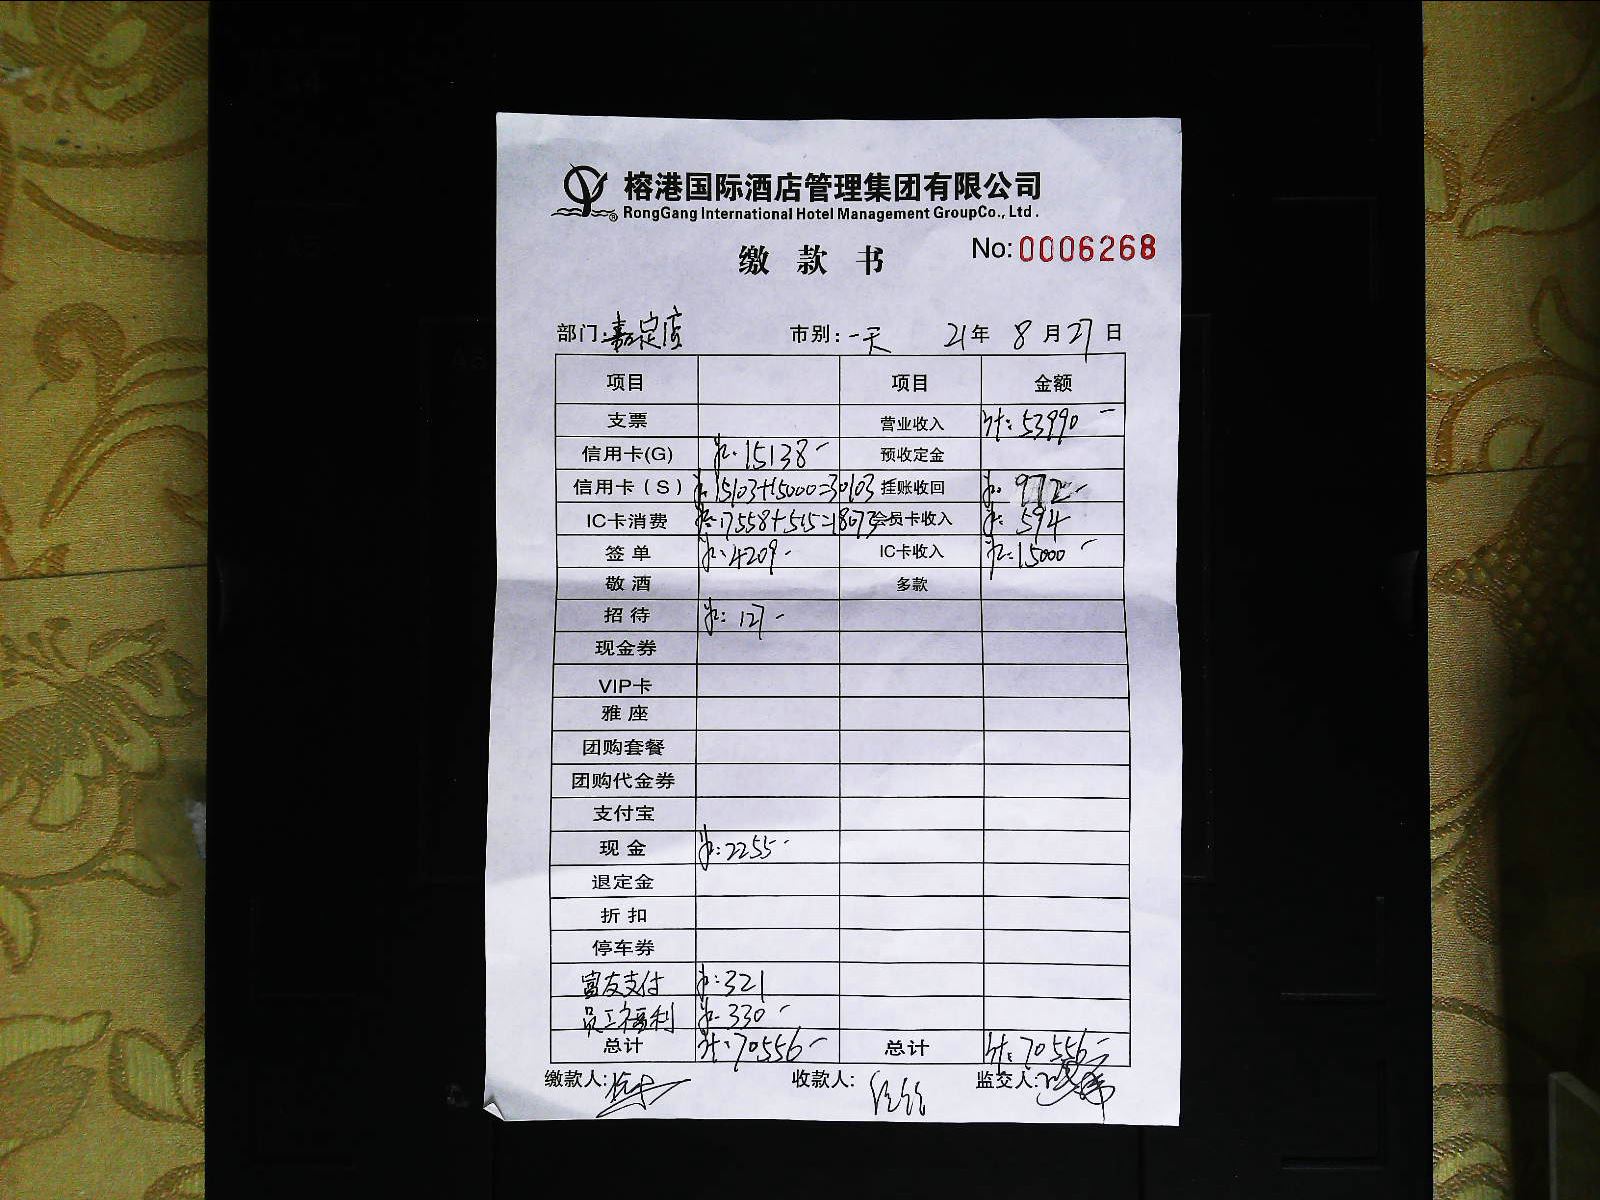 榕港国际酒店管理集团有限公司
RongGang International Hotel Management GroupCo., Ltd.
缴款书 No:0006268
部门:嘉定店 市别:一天 21年 8月27日
项目 项目 金额
支票 营业收入 计:53990-
信用卡(G) 15138- 预收定金
信用卡(S) 15103+15000=30103 挂账收回 972-
IC卡消费 17558+515=18073 会员卡收入 594
签单 4209- IC卡收入 15000-
敬酒 多款
招待 127-
现金券
VIP卡
雅座
团购套餐
团购代金券
支付宝
现金 2255-
退定金
折扣
停车券
富友支付 321
员工福利 330-
总计 计:70556- 总计 计:70556-
缴款人: 收款人: 监交人: